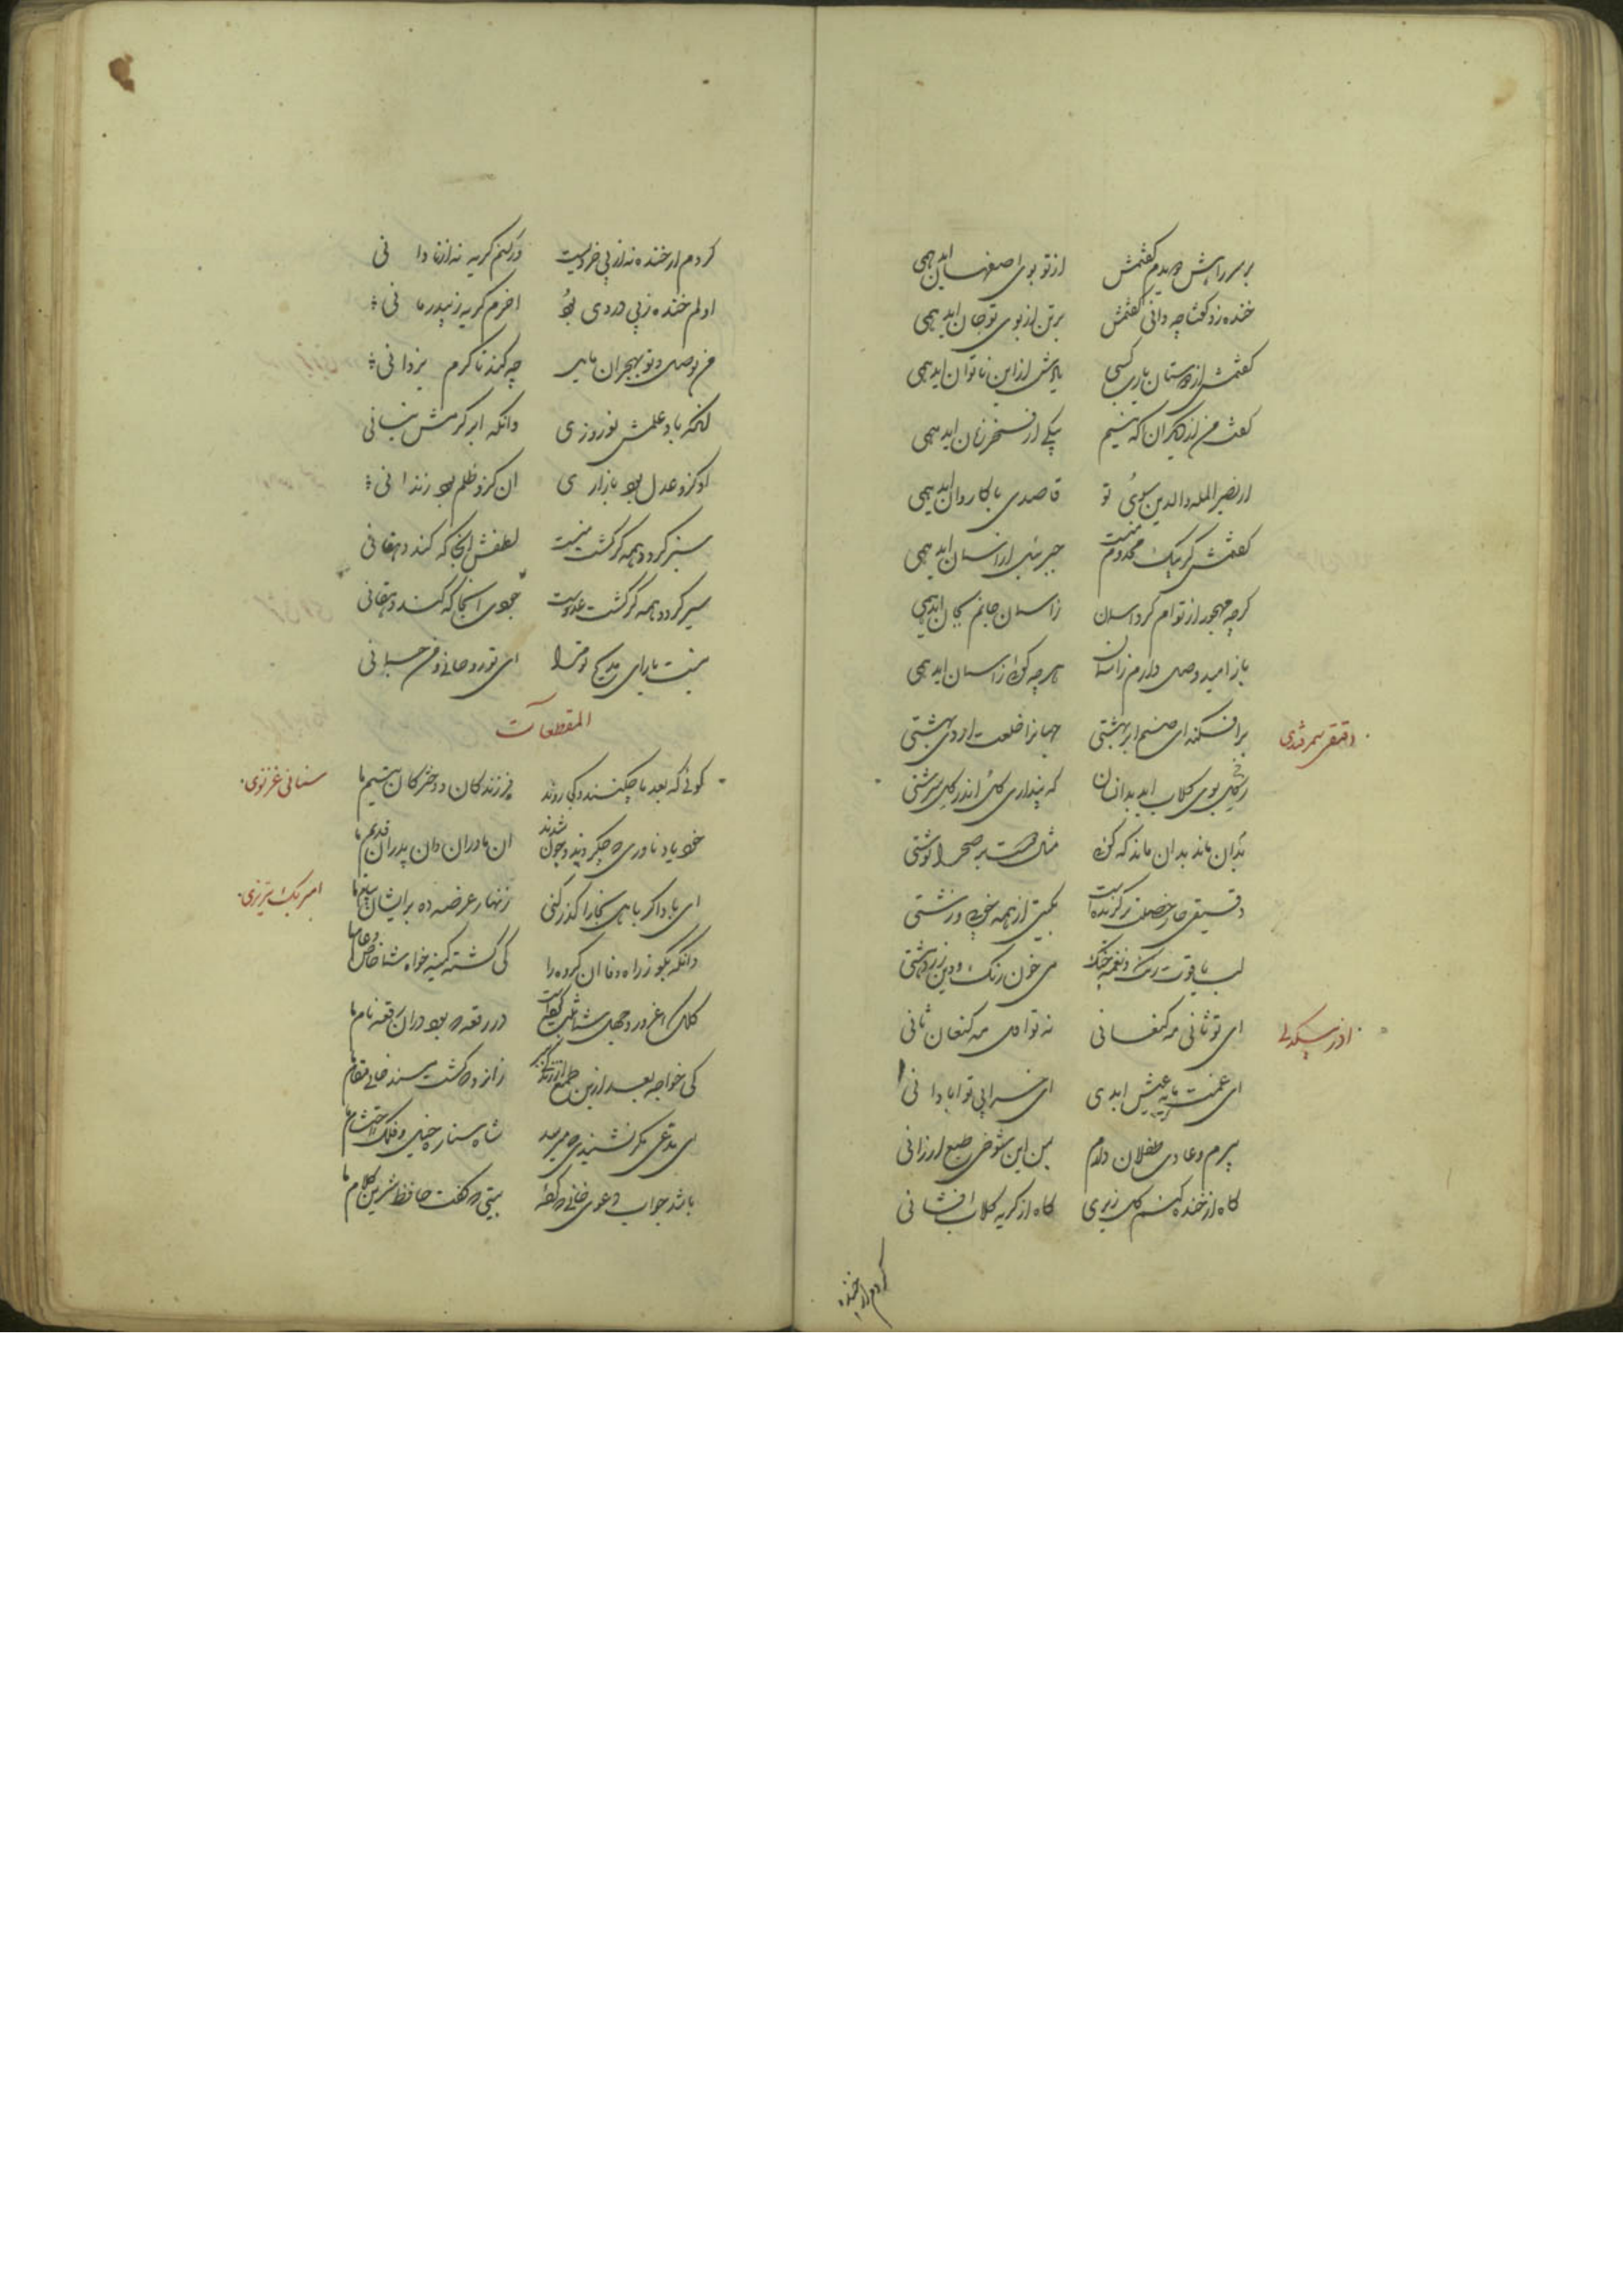 بر سر راهش چو دیدم گفتمش از تو بوی اصفهان اید همی
خنده زد گفتا چه دانی گفتمش بر تن از بوی تو جان اید همی
گفتمش از دوستان یاری کسی یادش از این ناتوان اید همی
گفت من از دیگران اکه نیم پیکی از فخر زمان اید همی
از نصیر المله والدین سوی تو قاصدی با کاروان اید همی
گفتمش گر پیک مخدوم منست جبرئیل از اسمان اید همی
کرچه مهجور از توام کرد اسمان زاسمان جانم بجان اید همی
باز امید وصل دارم زاسمان هرچه کوئی از اسمان اید همی
دقیقی سمرقندی
برافکند ای صنم ابر بهشتی جهانرا خلعت اردی بهشتی
ز کل بوی کلاب اید بدانسان که پنداری کل اندر کل سرشتی
بدان ماند بدان ماند که کوئی مثال دوست بر صحرا نوشتی
دقیقی چار خصلت برکزیده است بکیتی از همه خوبی و زشتی
لب یاقوت رنک و نغمه چنک می خون رنک و دین زردهشتی
اذر بیکدلی
ای تو ثانی مه کنعانی نه تو اول مه کنعان ثانی
ای غمت مایه عیش ابدی ای خرابی تو ابادانی
پیرم و عادت طفلان دارم بین این شوخی طبع ارزانی
کاه از خنده کنم کل ریزی کاه از کریه کلاب افشانی
کردم ار خنده
کردم ار خنده نه از بی خردیست ور کنم کریه نه از نادانی
اولم خنده ز بی دردی بود اخرم کریه ز بیدرمانی
من بوصل و تو بهجران مایل چه کند تا کرم یزدانی
انکه باد علمش نوروزی وانکه ابر کرمش نیسانی
او کزو عدل بود بازاری ان کزو ظلم بود زندانی
سبز کردد همه کر کشت منست لطفش انجا که کند دهقانی
سیر کردد همه کر کشت عدوست جودی انجا که کند دهقانی
نیست یارای مدیح تو مرا ای تو روحانی و من جسمانی
المقطعات
سنائی غزنوی
کوئی که بعد ما چکنند و کجا روند فرزندکان و دخترکان یتیم ما
خود یاد ناوری که چکردند و چون شدند ان مادران و ان پدران قدیم ما
امیر بیک تبریزی
ای باد اکر باهل بخارا کذر کنی زنهار عرضه ده بر ایشان پیام ما
وانکه بکو ز راه وفا ان کروه را کی کشته کینه خواه شما خاص و عام ما
کلک غرور و جهل شما ثبت کرده است در رقعه که بود دران رقعه نام ما
کی خواجه بعد ازین طمع از زندکی ببر زانرو که کشت مسند خانی مقام ما
ای مدعی مکر نشنیدی که میرسد شاه ستاره خیل و فلک احتشام ما
باشد جواب دعوی خانی که کفته بیتی که کفت حافظ شیرین کلام ما